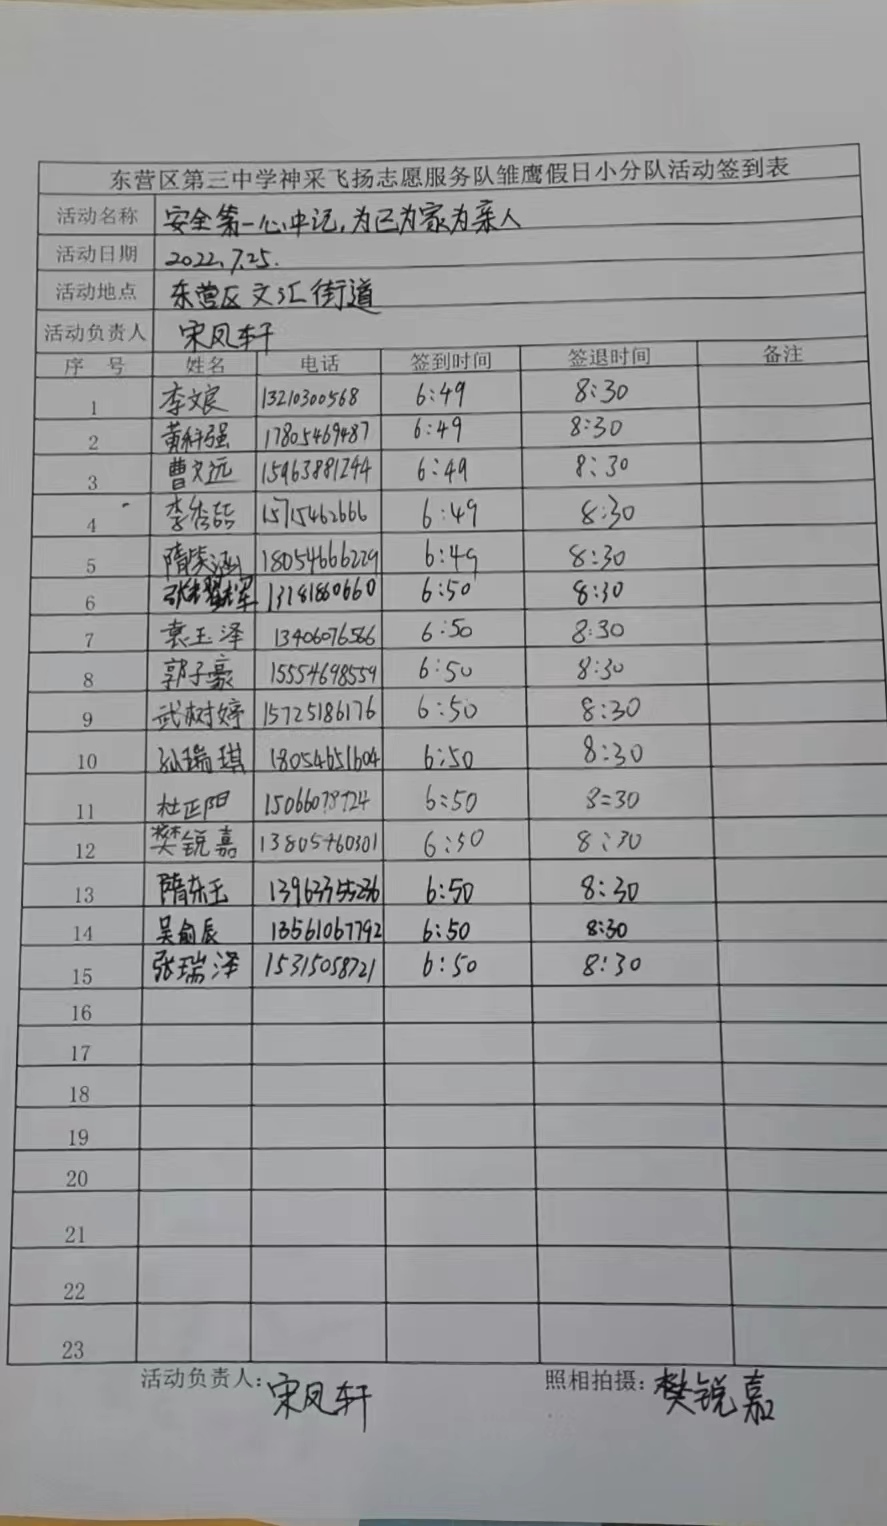 东营区第三中学神采飞扬志愿服务队雏鹰假日小分队活动签到表
活动名称 安全第一心中记,为己为家为亲人
活动日期 2022.7.25.
活动地点 东营区文汇街道
活动负责人 宋凤轩
序 号 姓名 电话 签到时间 签退时间 备注
1 李文良 13210300568 6:49 8:30
2 黄科强 17805469487 6:49 8:30
3 曹文远 15963881244 6:49 8:30
4 15715462666 6:49 8:30
5 隋笑涵 18054666229 6:49 8:30
6 13181860660 6:50 8:30
7 袁玉泽 13406076566 6:50 8:30
8 郭子豪 15554698559 6:50 8:30
9 武树婷 15725186176 6:50 8:30
10 孙瑞琪 18054651604 6:50 8:30
11 杜正阳 6:50 8:30
12 樊锐嘉 13805460301 6:50 8:30
13 隋东玉 6:50 8:30
14 吴俞辰 13561067792 6:50 8:30
15 张瑞泽 15315058721 6:50 8:30
16
17
18
19
20
21
22
23
活动负责人: 宋凤轩 照相拍摄: 樊锐嘉